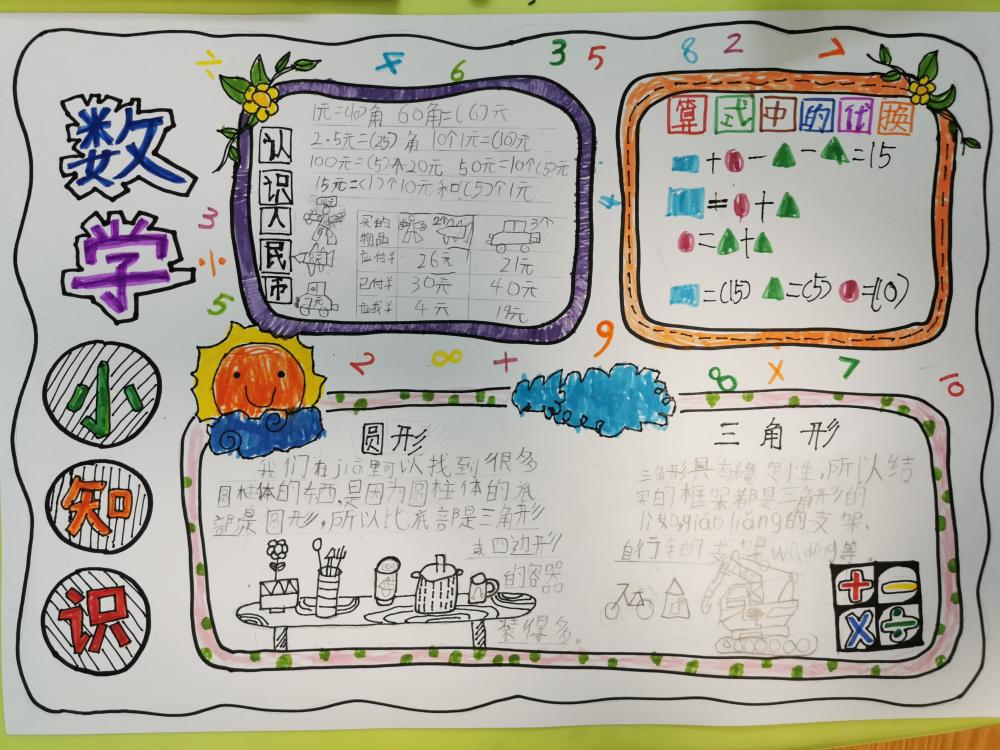 数
学
小
知
识
÷ 4 6 3 5 8 2 7
认识人民币
1元=(10)角 60角=(6)元
2.5元=(25)角 10个1元=(10)元
100元=(5)个20元 50元=10个(5)元
15元=(1)个10元和(5)个1元
买的物品 3个
应付 26元 21元
已付 30元 40元
应找 4元 19元
算式中的代换
+ - - =15
= +
= +
=(15) =(5) =(10)
3
小
5
4
2 8 + 9 8 × 7 10
圆形
我们在jiā里可以找到很多
圆柱体的东西,是因为圆柱体的底
部是圆形,所以比底部是三角形
或四边形
的容器
装得多。
三角形
三角形具有稳定小生,所以结
实的框架都是三角形的
qiáo liáng的支架、
自行车的支架wū dǐng等。
+ −
× ÷